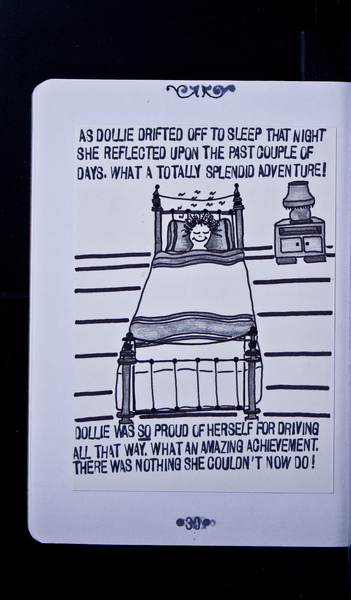 AS DOLLIE DRIFTED OFF TO SLEEP THAT NIGHT
SHE REFLECTED UPON THE PAST COUPLE OF
DAYS. WHAT A TOTALLY SPLENDID ADVENTURE!
DOLLIE WAS SO PROUD OF HERSELF FOR DRIVING
ALL THAT WAY. WHAT AN AMAZING ACHIEVEMENT.
THERE WAS NOTHING SHE COULDN'T NOW DO!
30